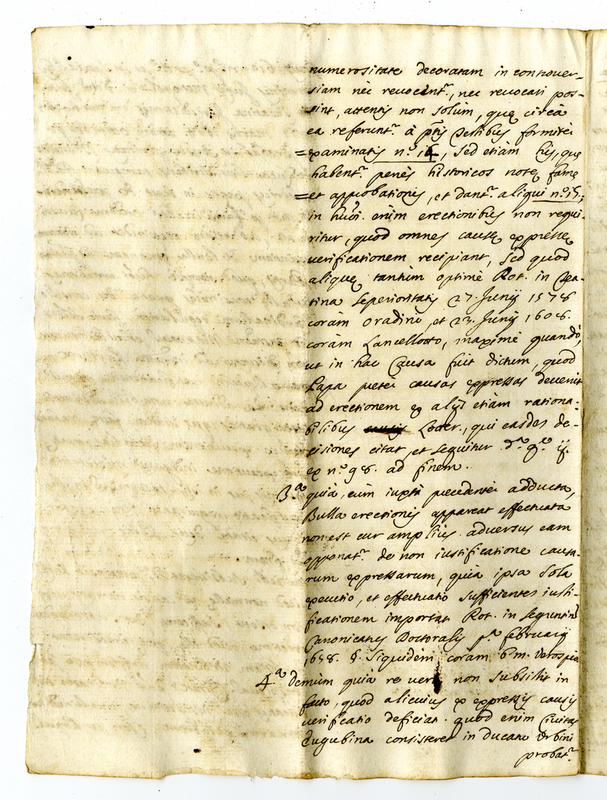 numerositate decoratam in controuer-
siam nec reuocent.r, nec reuocari pos-
sint, attentis non solum, quę circa
ea referunt.r à p.tis Testibus formiter
examinatis n.o 14, sed etiam his, quę
habent.r penes historicos notę famę
et approbationis, et dant.r aliqui n.o 15;
in huõi. enim erectionibus non requi
ritur, quod omnes causę expressę
verificationem recipiant, sed quod
aliquę tantùm optimè Rot. in
tina 27 Junij 1578
coràm Oradino, et 23. Junij 1606.
coràm Lancellotto, maximè quando,
ut in hac Causa fuit dictum, quod
Papa preter causas expressas deuenit
ad erectionem ex alijs etiam rationa-
bilibus Lotter., qui easdem de-
cisiones citat, et sequitur d.o q.e
ex n.o 98. ad finem.
3.a quia, cùm iuxta precedenter adducta,
Bulla erectionis appareat effectuata
non est cur amplius aduersus eam
opponat.r de non iustificatione causa-
rum expressarum, quia ipsa sola
executio, et effectuatio sufficienter iusti-
ficationem important Rot. in Seguntina
Canonicatus Doctoralis p.a februarij
1658. §. Siquidem coram b. m. Verospio
4.a Demùm quia re vera non subsistit in
facto, quod alicuius ex expressis causis
verificatio deficiat. quod enim Ciuitas
Eugubina consisteret in Ducatu Vrbini
probat.r